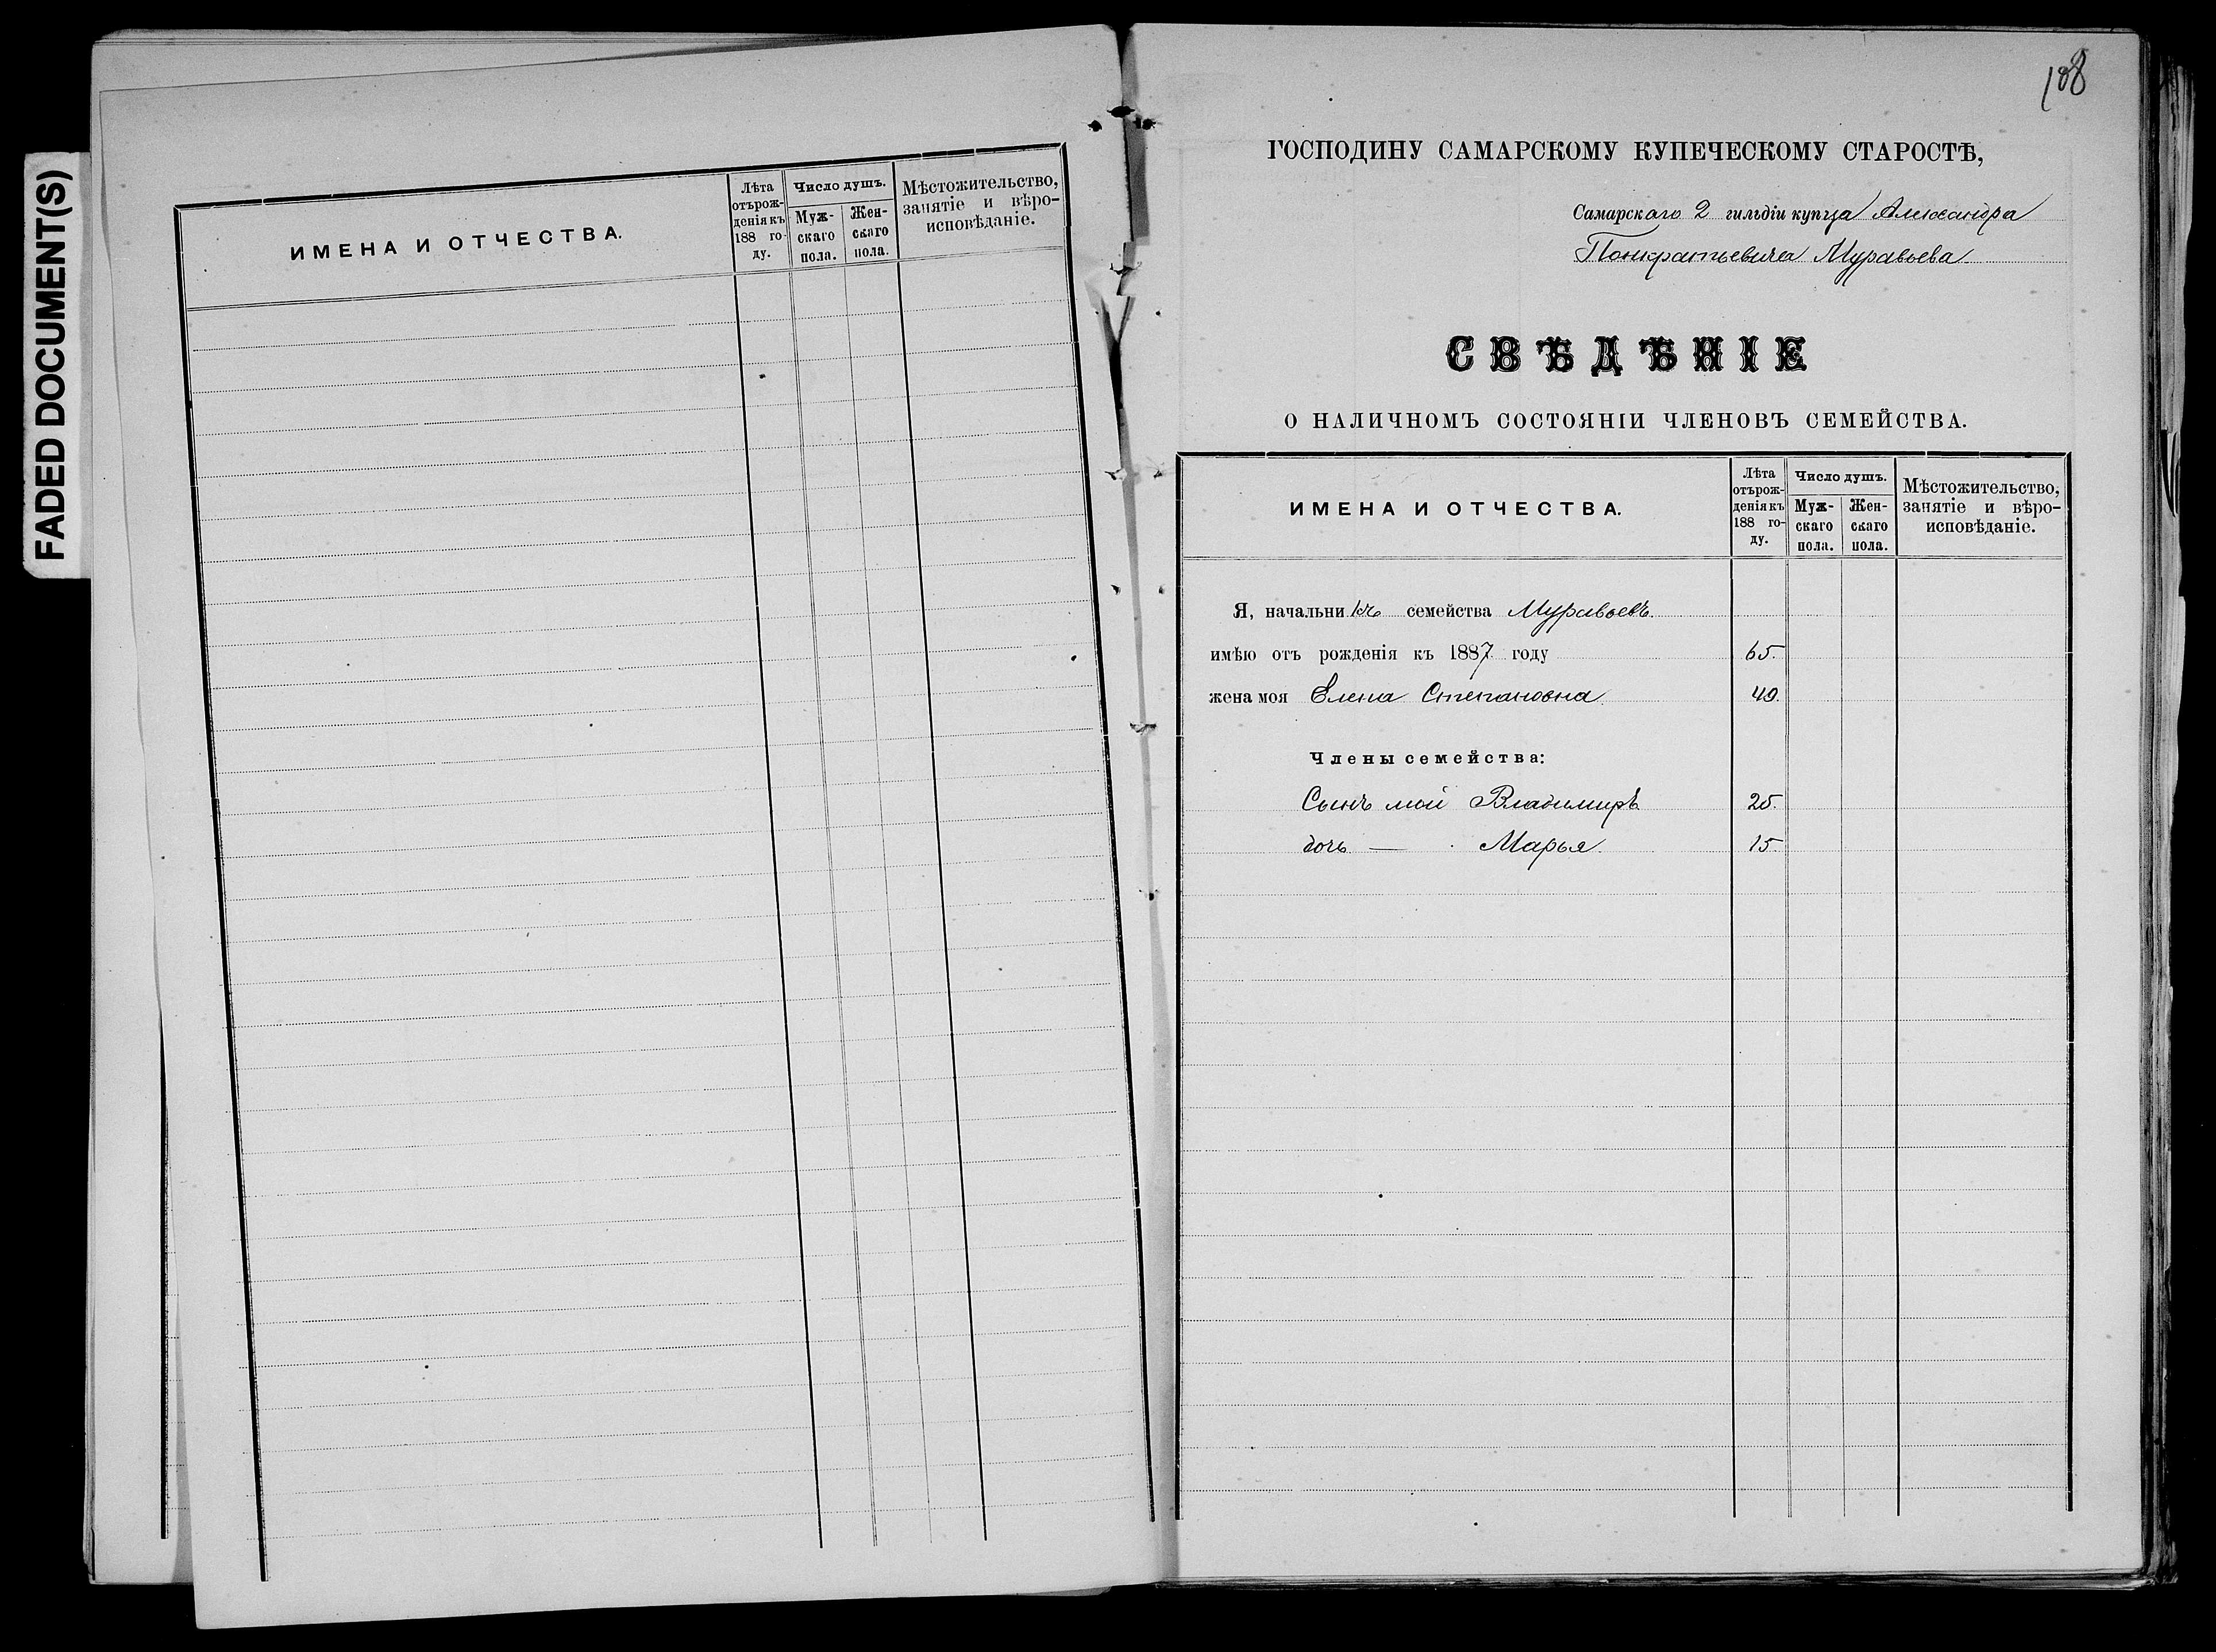 FADED DOCUMENT(S)
ИМЕНА И ОТЧЕСТВА.
Лѣта
отърож-
денія къ
188 го-
ду.
Число душъ.
Муж-
скаго
пола.
Жен-
скаго
пола.
Мѣстожительство,
занятіе и вѣро-
исповѣданіе.
108
ГОСПОДИНУ САМАРСКОМУ КУПЕЧЕСКОМУ СТАРОСТѢ,
Самарскаго 2 гильдіи купца Александра
Понкратьевича Муравьева.
СВѢДѢНІЕ
О НАЛИЧНОМЪ СОСТОЯНІИ ЧЛЕНОВЪ СЕМЕЙСТВА.
ИМЕНА И ОТЧЕСТВА.
Лѣта
отърож-
денія къ
188 го-
ду.
Число душъ.
Муж-
скаго
пола.
Жен-
скаго
пола.
Мѣстожительство,
занятіе и вѣро-
исповѣданіе.
Я, начальникъ семейства Муравьевъ.
имѣю отъ рожденія къ 1887 году 65.
жена моя Елена Степановна. 40.
Члены семейства:
Сынъ мой Владимиръ 25.
дочь — Марья. 15.